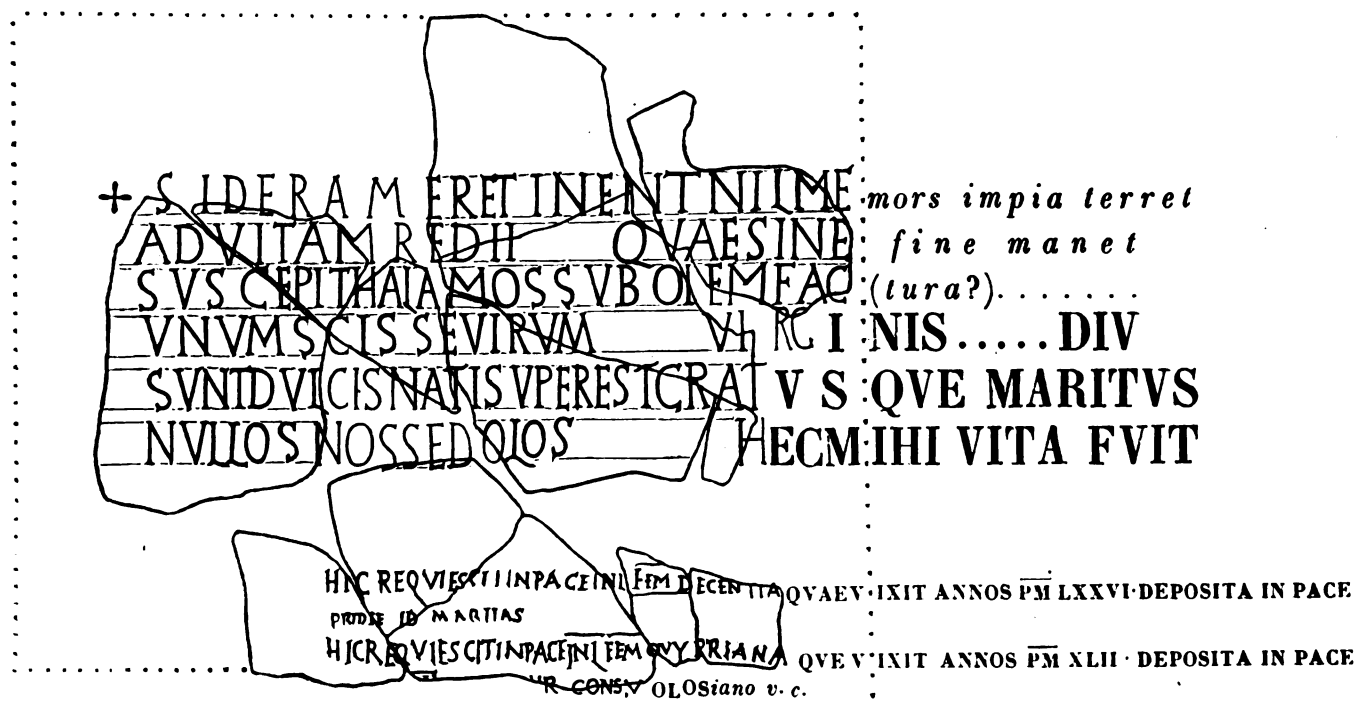 + SIDERAMERETINENTNILME mors impia terret
ADVITAMREDII QVAESINE fine manet
SVSCEPITHALAMOSSVBOLEMFAC (tura?).......
VNVMSCISSEVIRVM VIRGINIS.....DIV
SVNTDVLCISNATISVPERESTGRATVSQVE MARITVS
NVLLOSNOSSEDOLOS HECMIHI VITA FVIT
HIC REQVIESCTIINPACEINL FEM DECENTIAQVAEVIXIT ANNOS PM LXXVI·DEPOSITA IN PACE
PRIDIE ID MARTIAS
HICREQVIESCITINPACEINLFEM QVYRRIANA QVE VIXIT ANNOS PM XLII·DEPOSITA IN PACE
CONSV OLOSiano v. c.